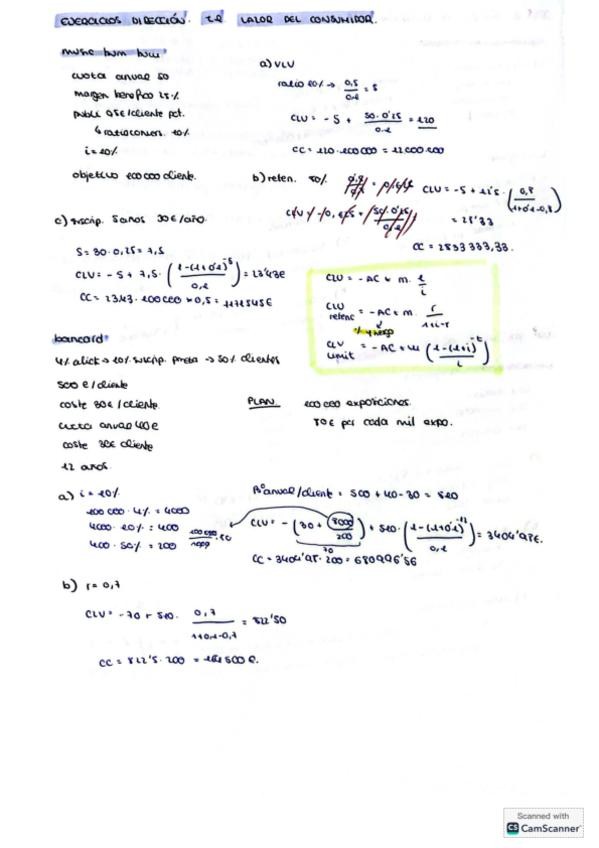 EJERCICIOS DIRECCIÓN. T.2 VALOR DEL CONSUMIDOR.
music hum
cuota anual 50
margen beneficio 25%
publi 0,5€/cliente pot.
↳ ratio convers. 10%
i = 10%
objetivo 100 000 cliente.
a) VLV
ratio 10% → 0,5/0,1 = 5
CLV = -5 + 50·0'25/0,1 = 120
CC = 120·100000 = 12000000
b) reten. 80%
CLV = -5 + 12'5·(0,8/1+0'1-0,8)
= 28'33
CC = 2833 333,33.
c) suscrip. 5 anos 30€/año.
S = 30·0,25 = 7,5
CLV = -5 + 7,5·(1-(1+0'1)^-5/0,1) = 23'43€
CC = 23'43·100000·0,5 =
CLV = -AC + m · 1/i
CLV retenc = -AC + m · r/1+i-r
CLV limit = -AC + m (1-(1+i)^-t/i)
bancard
4% click → 10% suscrip. → 50% clientes
500 €/cliente
coste 30€/cliente
cuota anual 40€
coste 30€ cliente
12 anos.
PLAN. 100 000 exposiciones.
80€ por cada mil expo.
a) i = 10%
100 000 · 4% = 4000
4000 · 10% = 400
400 · 50% = 200
100 000/1000 · 80
Bº anual/cliente = 500 + 40 - 30 = 510
CLV = -(30 + 8000/200) + 510·(1-(1+0'1)^-12/0,1) = 3404'98€.
70
CC = 3404'98·200 = 680996'56
b) r = 0,7
CLV = -70 + 510 · 0,7/1+0,1-0,7 = 822'50
CC = 822'5·200 = 164500€.
Scanned with
CS CamScanner